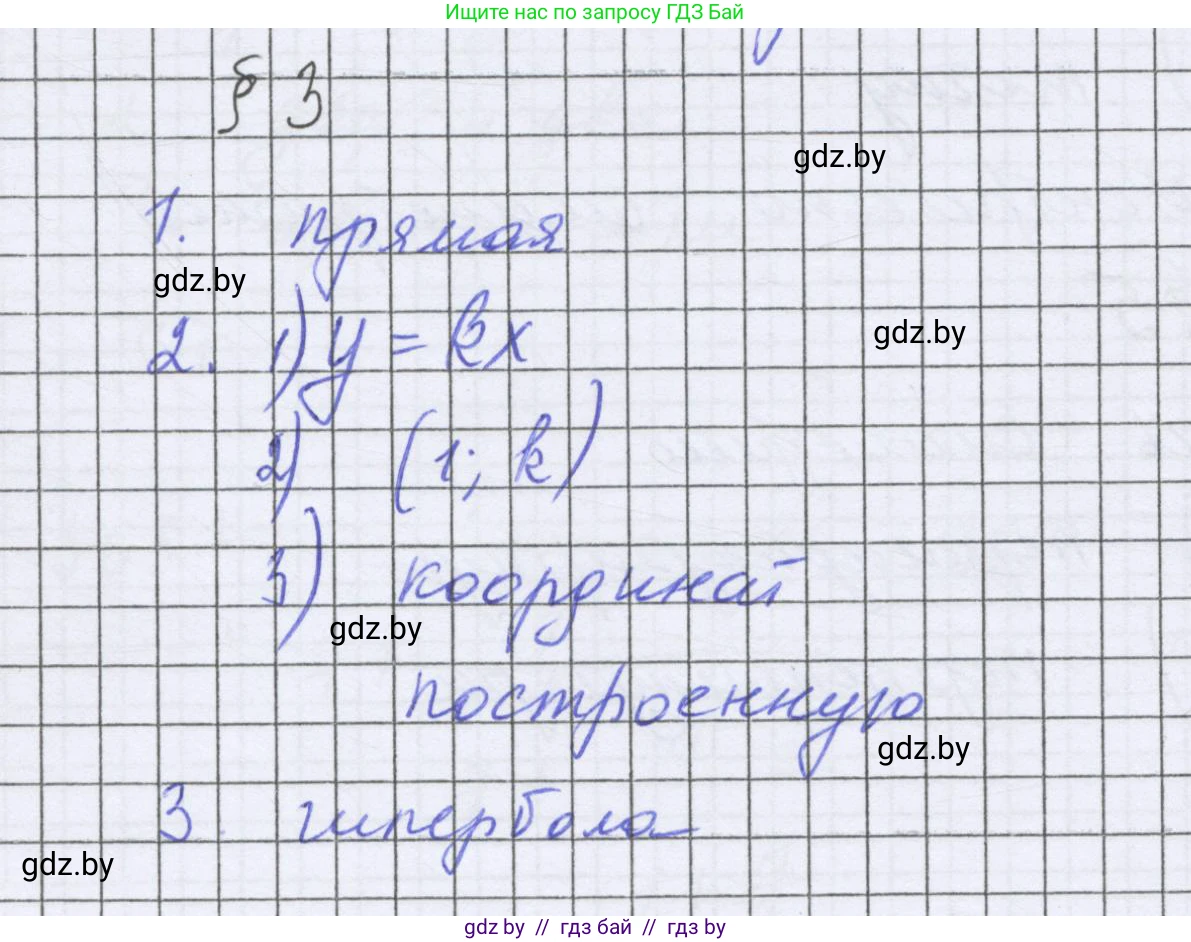 Ищите нас по запросу ГДЗ Бай
§ 3
gdz.by
1. прямая
gdz.by
2. 1) y = kx
gdz.by
2) (1; k)
3) координат
gdz.by
построенную
gdz.by
3. гипербола
gdz.by
gdz.by // гдз бай // гдз by